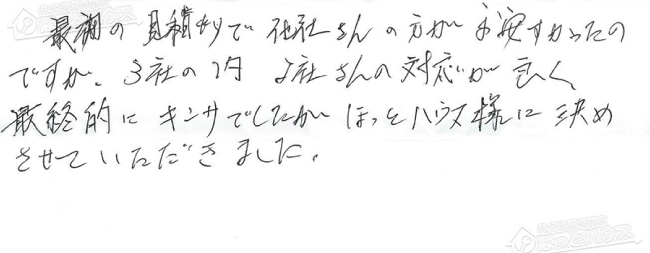 最初の見積りで他社さんの方がお安すかったの
ですが、3社の内 2社さんの対応が良く
最終的にキンサでしたが ほっとハウス様に決め
させていただきました。
ほっとハウス